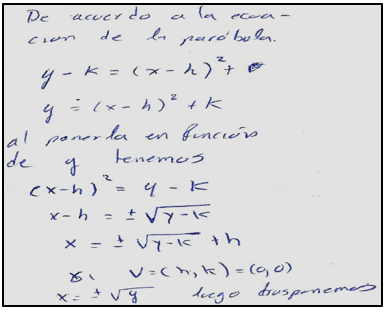 De acuerdo a la ecua-
cion de la parábola.
y - k = (x - h)² +
y = (x - h)² + k
al ponerla en función
de y tenemos
(x-h)² = y - k
x - h = ± √y-k
x = ± √y-k + h
si V = (h, k) = (0, 0)
x = ± √y luego trasponemos